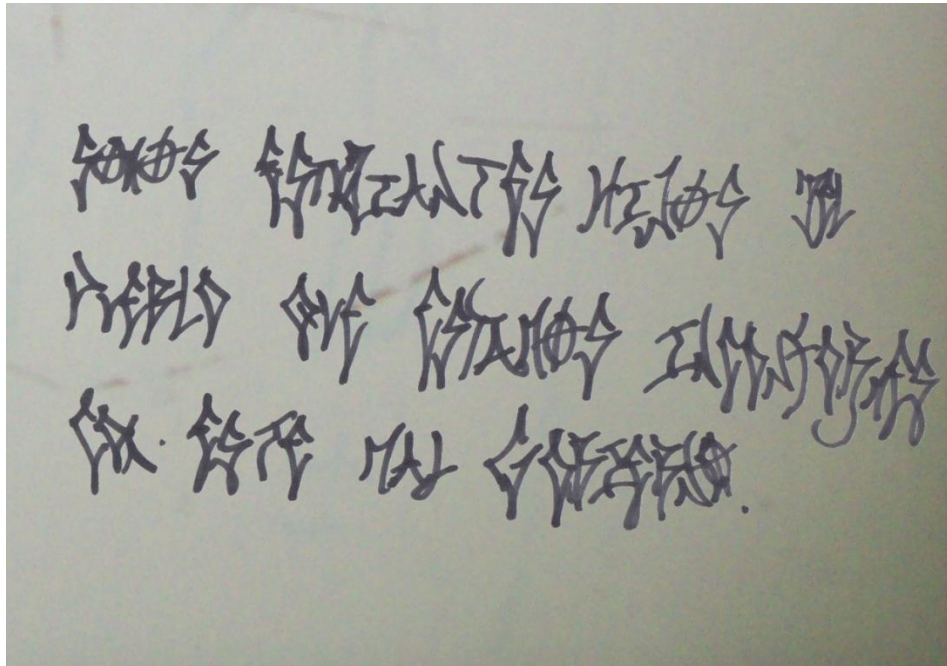 SOMOS ESTUDIANTES HIJOS DEL
PUEBLO QUE ESTAMOS INCONFORMES
CON ESTE MAL GOBIERNO.